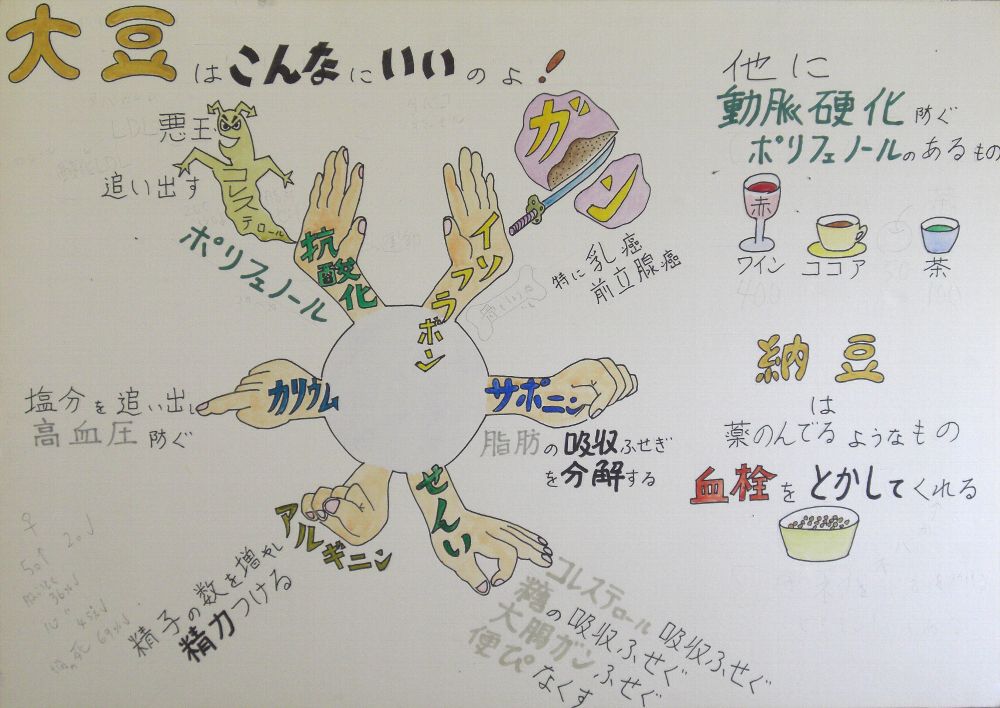 大豆はこんなにいいのよ!
悪玉
追い出す
コレステロール
ポリフェノール
抗酸化
イソフラボン
ガン
特に乳癌
前立腺癌
カリウム
塩分を追い出し
高血圧防ぐ
サポニン
脂肪の吸収ふせぎ
を分解する
アルギニン
精子の数を増やし
精力つける
せんい
コレステロール吸収ふせぐ
糖の吸収ふせぐ
大腸ガンふせぐ
便ぴなくす
他に
動脈硬化防ぐ
ポリフェノールのあるもの
赤
ワイン ココア 茶
納豆
は
薬のんでるようなもの
血栓をとかしてくれる